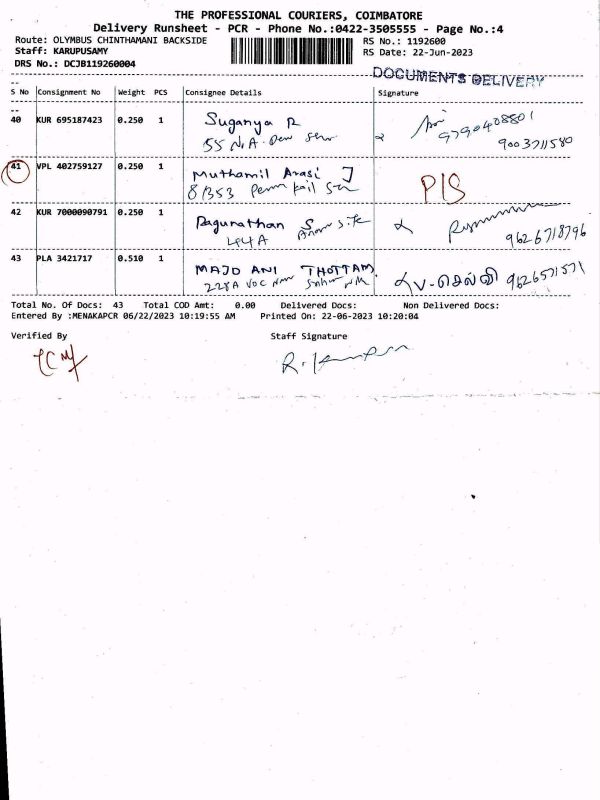 THE PROFESSIONAL COURIERS, COIMBATORE
Delivery Runsheet - PCR - Phone No.:0422-3505555 - Page No.:4
Route: OLYMBUS CHINTHAMANI BACKSIDE RS No.: 1192600
Staff: KARUPUSAMY RS Date: 22-Jun-2023
DRS No.: DCJB119260004
DOCUMENTS DELIVERY
S No Consignment No Weight PCS Consignee Details Signature
40 KUR 695187423 0.250 1 Suganya R 9790408801
55 N.A. 9003711580
41 VPL 402759127 0.250 1 Muthamil Arasi J
8/353 PIS
42 KUR 7000090791 0.250 1 Ragunathan S
44A 9626718796
43 PLA 3421717 0.510 1 MAJO ANI THOTTAM V-செல்வி 9626571571
228A VOC
Total No. Of Docs: 43 Total COD Amt: 0.00 Delivered Docs: Non Delivered Docs:
Entered By :MENAKAPCR 06/22/2023 10:19:55 AM Printed On: 22-06-2023 10:20:04
Verified By Staff Signature